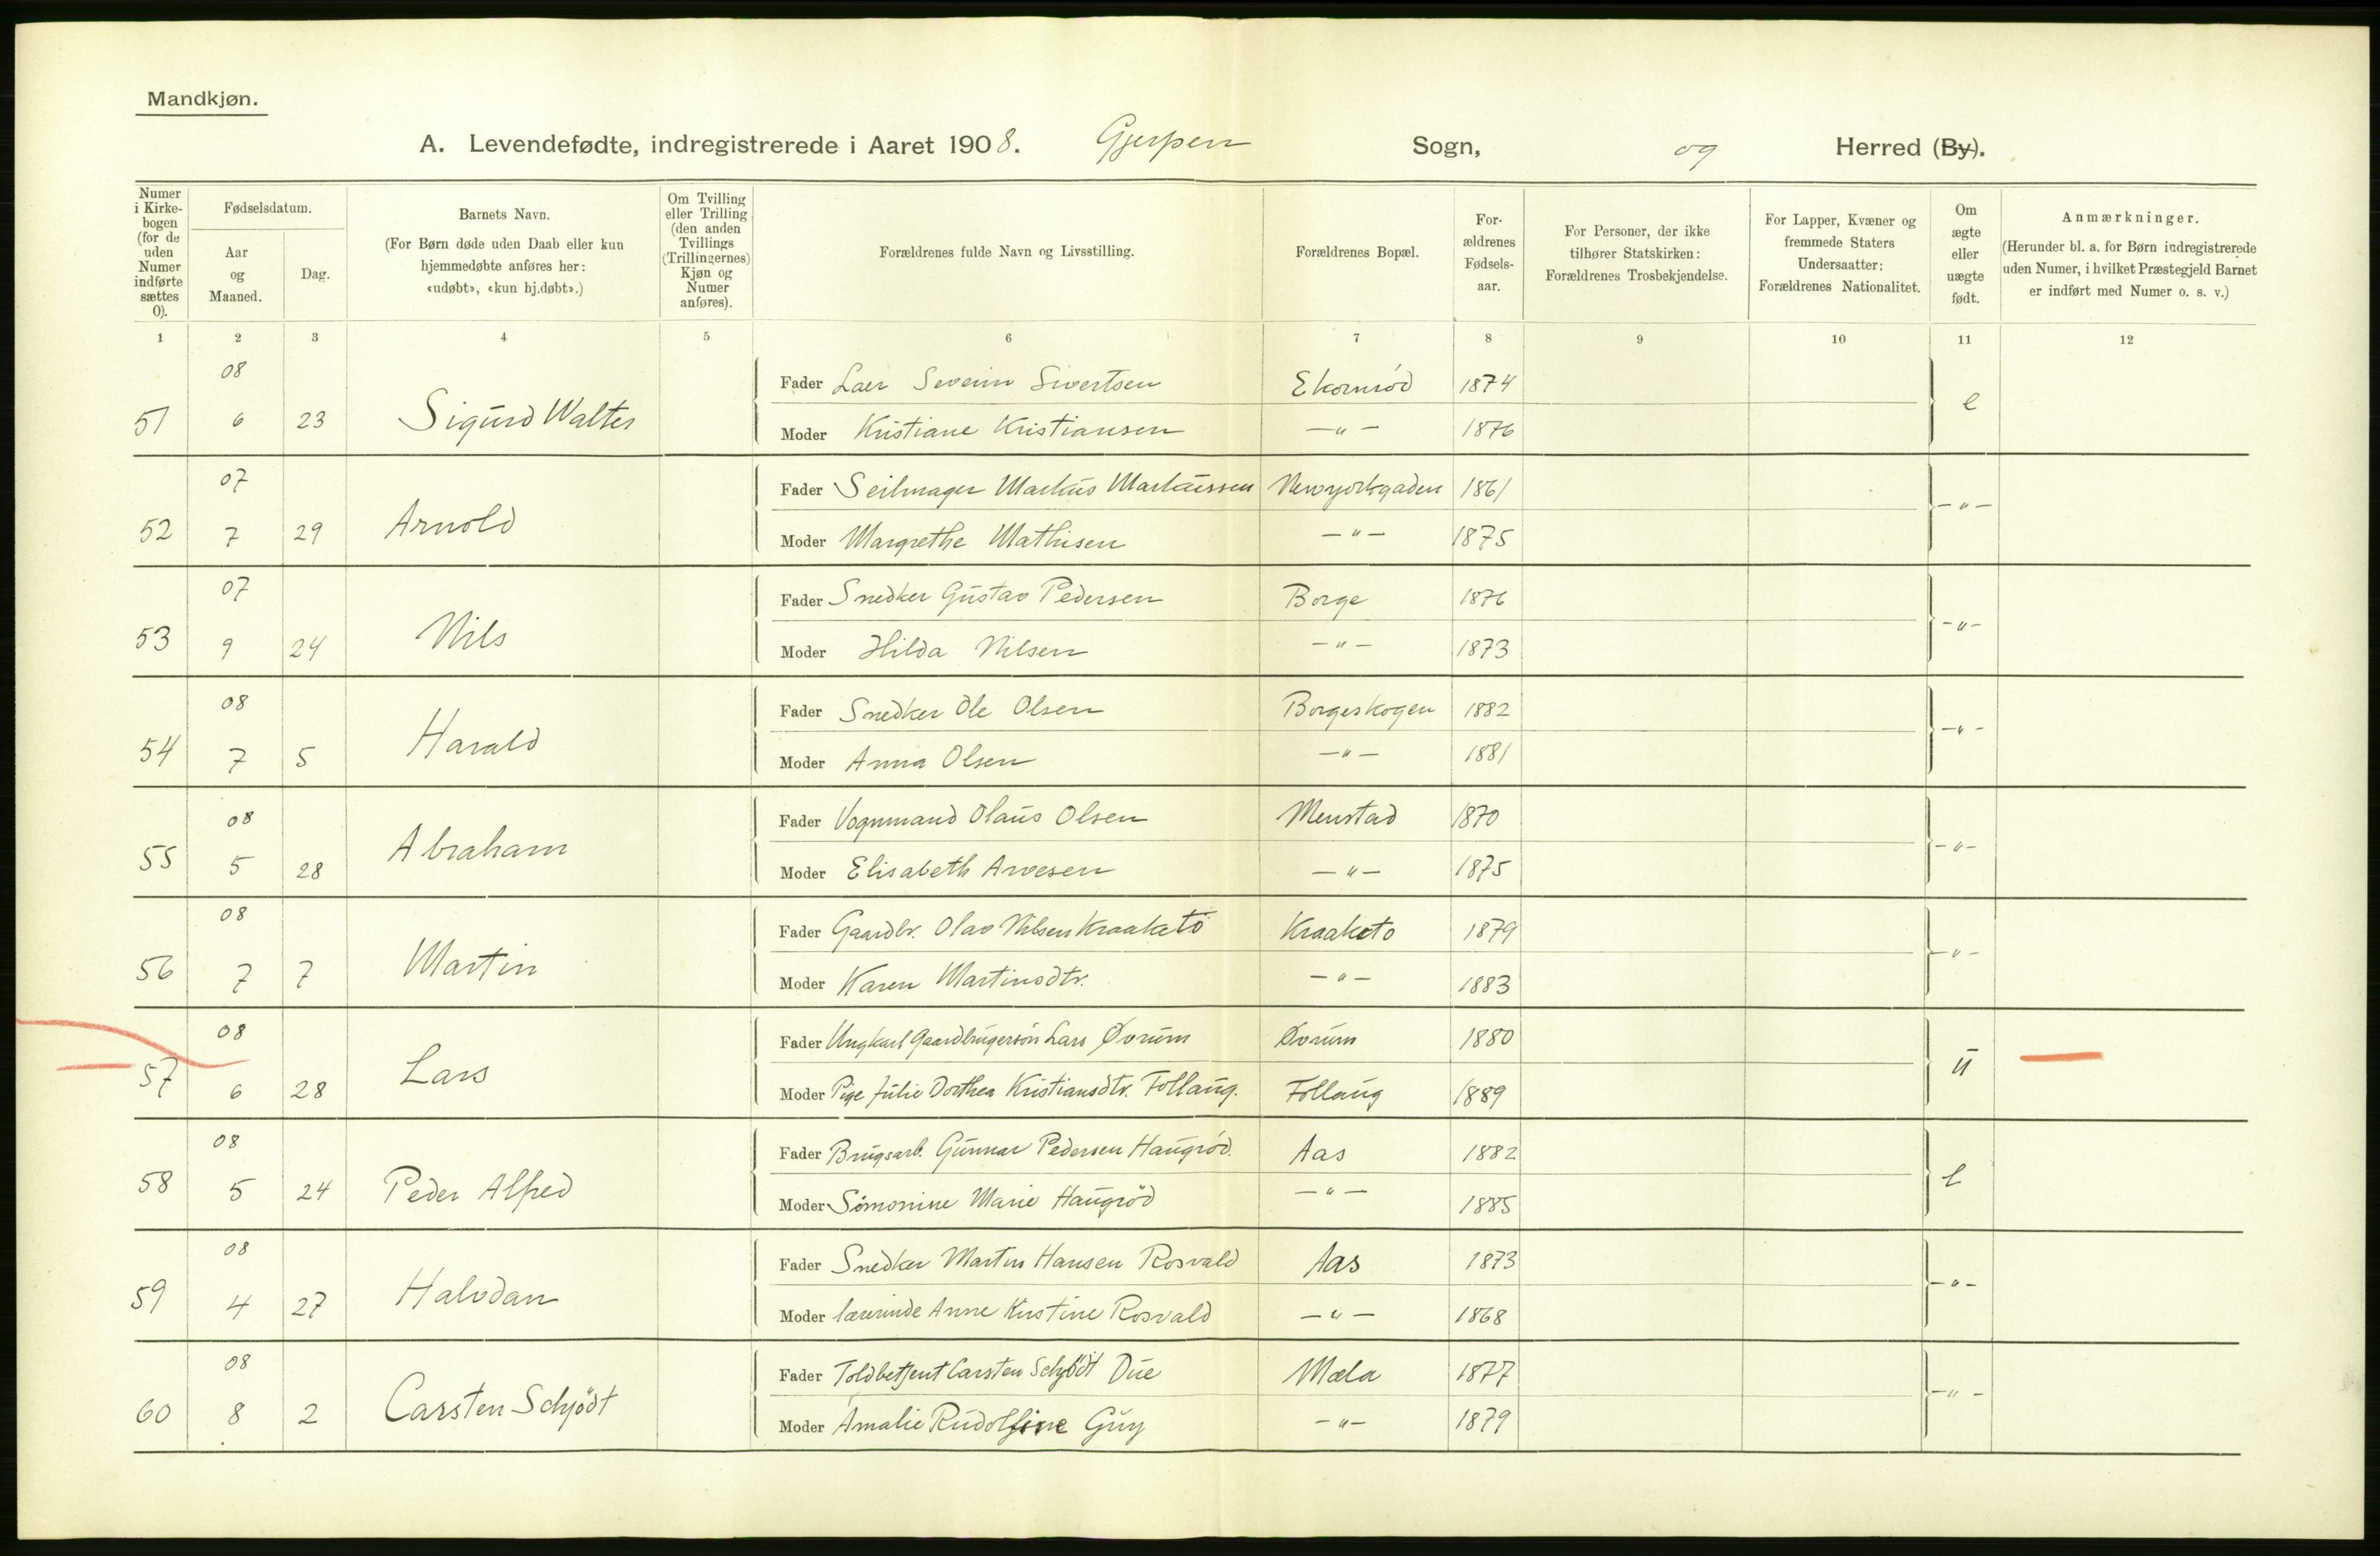 Mandkjøn.
A. Levendefødte, indregistrerede i Aaret 1908. Gjerpen Sogn, og Herred (By).
Numer i Kirke-bogen (for de uden Numer indførte sættes 0).
Fødselsdatum.
Aar og Maaned.
Dag.
Barnets Navn.
(For Børn døde uden Daab eller kun hjemmedøbte anføres her: «udøbt», «kun hj.døbt».)
Om Tvilling eller Trilling (den anden Tvillings (Trillingernes) Kjøn og Numer anføres).
Forældrenes fulde Navn og Livsstilling.
Forældrenes Bopæl.
For-ældrenes Fødsels-aar.
For Personer, der ikke tilhører Statskirken: Forældrenes Trosbekjendelse.
For Lapper, Kvæner og fremmede Staters Undersaatter: Forældrenes Nationalitet.
Om ægte eller uægte født.
Anmærkninger.
(Herunder bl. a. for Børn indregistrerede uden Numer, i hvilket Præstegjeld Barnet er indført med Numer o. s. v.)
1 2 3 4 5 6 7 8 9 10 11 12
08 Fader Severin Sivertsen Ekornrød 1874 e
51 6 23 Sigurd Walter Moder Kristiane Kristiansen —"— 1876
07 Fader Seilmager Markus Markussen Newyorkgaden 1861 —"—
52 7 29 Arnold Moder Margrethe Mathisen —"— 1875
07 Fader Snedker Gustav Pedersen Borge 1876 —"—
53 9 24 Nils Moder Hilda Nilsen —"— 1873
08 Fader Snedker Ole Olsen Borgeskogen 1882 —"—
54 7 5 Harald Moder Anna Olsen —"— 1881
08 Fader Vognmand Olaus Olsen Menstad 1870 —"—
55 5 28 Abraham Moder Elisabeth Arvesen —"— 1875
08 Fader Gaardbr. Olav Nilsen Kraaketo Kraaketo 1879 —"—
56 7 7 Martin Moder Karen Martinsdtr. —"— 1883
08 Fader Ungkarl Gaardbrugersøn Lars Øvrum Øvrum 1880 u
57 6 28 Lars Moder Pige Julie Dorthea Kristiansdtr. Follaug. Follaug 1889
08 Fader Brugsarb. Gunnar Pedersen Haugrød. Aas 1882 e
58 5 24 Peder Alfred Moder Simonine Marie Haugrød —"— 1885
08 Fader Snedker Martin Hansen Rosvald Aas 1873 —"—
59 4 27 Halvdan Moder lærerinde Anne Kirstine Rosvald —"— 1868
08 Fader Toldbetjent Carsten Schjödt Due Mæla 1877 —"—
60 8 2 Carsten Schjödt Moder Amalie Rudolfine Guy —"— 1879